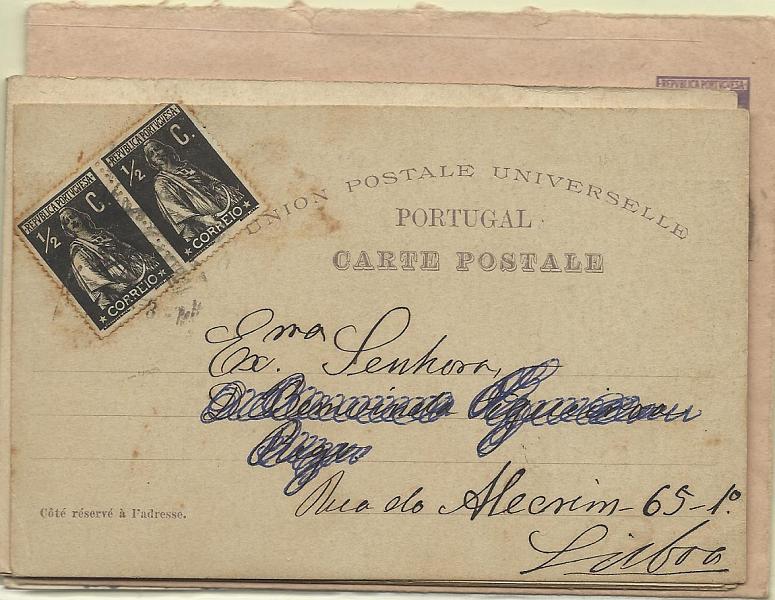 REPUBLICA PORTUGUESA
REPUBLICA PORTUGUESA
1/2 C.
CORREIO
REPUBLICA PORTUGUESA
1/2 C.
CORREIO
UNION POSTALE UNIVERSELLE
PORTUGAL
CARTE POSTALE
Exma. Senhora,
D.
Rua do Alecrim - 65 - 1º
Lisboa
Côté réservé à l'adresse.